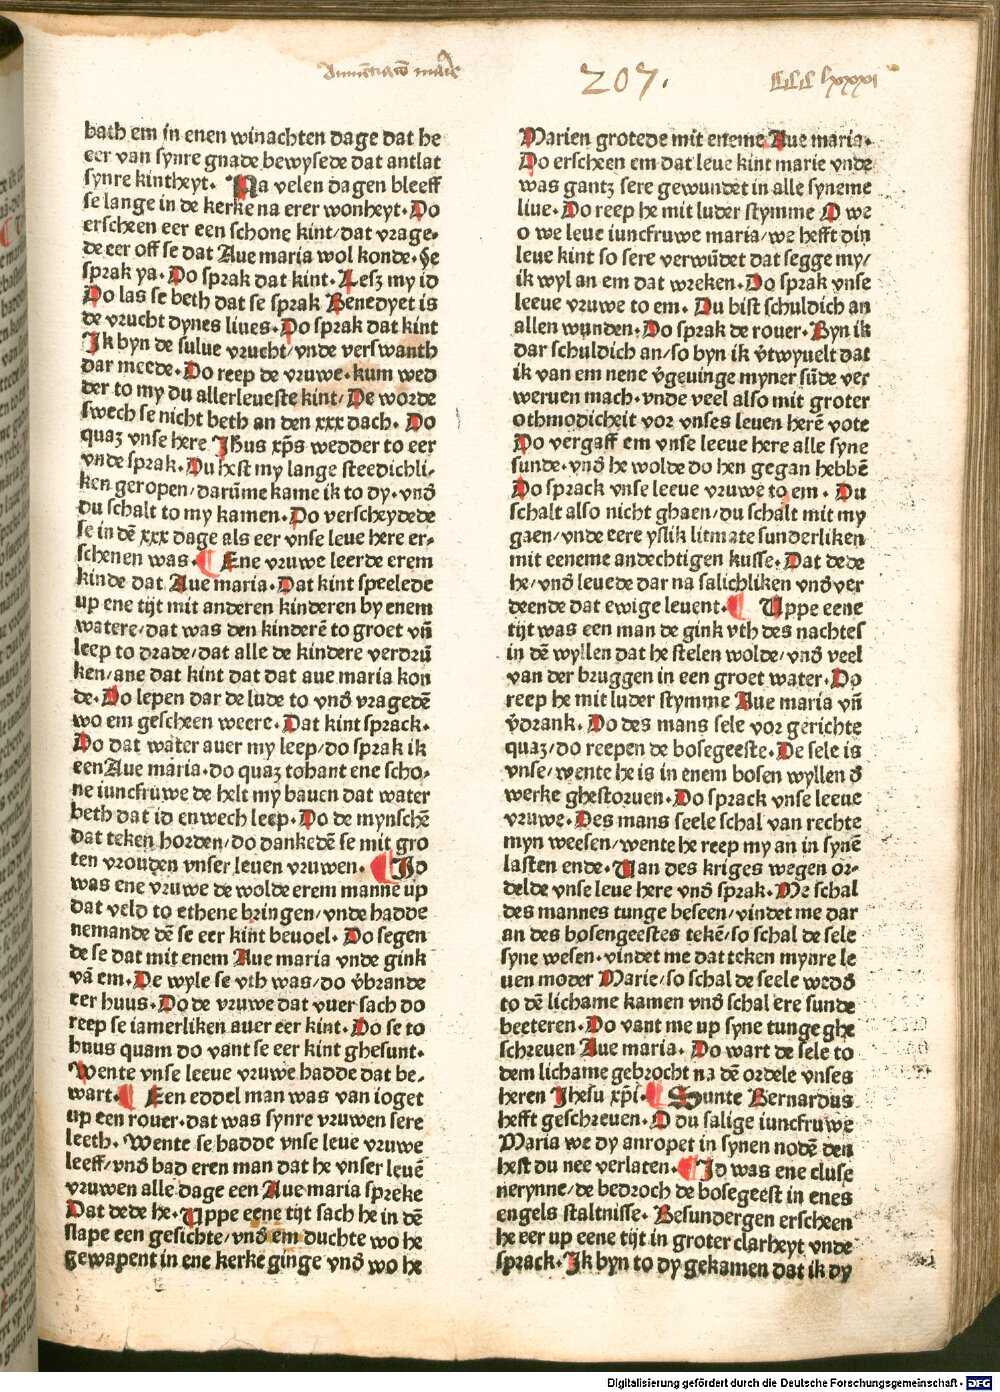 Annūciatō marie
207.
CCC lxxxi
bath em in enen winachten dage dat he
eer van synre gnade bewysede dat antlat
synre kintheyt. Na velen dagen bleeff
se lange in de kerke na erer wonheyt. Do
erscheen eer een schone kint/dat vrage-
de eer off se dat Aue maria wol konde. Se
sprak ya. Do sprak dat kint. Lesz my id
Do las se beth dat se sprak Benedyet is
de vrucht dynes liues. Do sprak dat kint
Ik byn de sulue vrucht/vnde verswanth
dar mede. Do reep de vruwe. kum wed
der to my du allerleueste kint/De worde
swech se nicht beth an den xxx dach. Do
quaz vnse here Jhus xp̄s wedder to eer
vnde sprak. Du hest my lange steedichli-
ken geropen/darūme kame ik to dy. vnd̄
du schalt to my kamen. Do verscheydede
se in dē xxx dage als eer vnse leue here er-
schenen was. ¶ Ene vruwe leerde erem
kinde dat Aue maria. Dat kint speelede
up ene tijt mit anderen kinderen by enem
watere/dat was den kinderē to groet vn̄
leep to drade/dat alle de kindere verdrū
ken/ane dat kint dat dat aue maria kon
de. Do lepen dar de lude to vnd̄ vragedē
wo em gescheen weere. Dat kint sprack.
Do dat water auer my leep/do sprak ik
een Aue maria. do quaz tohant ene scho-
ne iuncfruwe de helt my bauen dat water
beth dat id enwech leep. Do de mynschē
dat teken horden/do dankedē se mit gro
ten vrouden vnser leuen vruwen. ¶ Id
was ene vruwe de wolde erem manne up
dat veld to ethene bringen/vnde hadde
nemande dē se eer kint beuoel. Do segen
de se dat mit enem Aue maria vnde gink
vā em. De wyle se vth was/do v̄brande
eer huus. Do de vruwe dat vuer sach do
reep se iamerliken auer eer kint. Do se to
huus quam do vant se eer kint ghesunt.
Wente vnse leeue vruwe hadde dat be-
wart. ¶ Een eddel man was van ioget
up een rouer. dat was synre vruwen sere
leeth. Wente se hadde vnse leue vruwe
leeff/vnd̄ bad eren man dat he vnser leuē
vruwen alle dage een Aue maria spreke
Dat dede he. Uppe eene tijt sach he in dē
slape een gesichte/vnd̄ em duchte wo he
gewapent in ene kerke ginge vnd̄ wo he
Marien grotede mit eneme Aue maria.
Do erscheen em dat leue kint marie vnde
was gantz sere gewundet in alle syneme
liue. Do reep he mit luder stymme O we
o we leue iuncfruwe maria/we hefft din
leue kint so sere verwūdet dat segge my/
ik wyl an em dat wreken. Do sprak vnse
leeue vruwe to em. Du bist schuldich an
allen wunden. Do sprak de rouer. Byn ik
dar schuldich an/so byn ik v̄twyuelt dat
ik van em nene v̄geuinge myner sūde ver
weruen mach. vnde veel also mit groter
othmodicheit vor vnses leuen herē vote
Do vergaff em vnse leeue here alle syne
sunde. vnd̄ he wolde do hen gegan hebbē
Do sprack vnse leeue vruwe to em. Du
schalt also nicht ghaen/du schalt mit my
gaen/vnde eere yslik litmate sunderliken
mit eeneme andechtigen kusse. Dat dede
he/vnd̄ leuede dar na salichliken vnd̄ ver
deende dat ewige leuent. ¶ Uppe eene
tijt was een man de gink vth des nachtes
in dē wyllen dat he stelen wolde/vnd̄ veel
van der bruggen in een groet water. Do
reep he mit luder stymme Aue maria vn̄
v̄drank. Do des mans sele vor gerichte
quaz/do reepen de bosegeeste. De sele is
vnse/wente he is in enem bosen wyllen d̄
werke ghestoruen. Do sprack vnse leeue
vruwe. Des mans seele schal van rechte
myn weesen/wente he reep my an in synē
lasten ende. Uan des kriges wegen or-
delde vnse leue here vnd̄ sprak. Me schal
des mannes tunge beseen/vindet me dar
an des bosengeestes tekē/so schal de sele
syne wesen. vindet me dat teken mynre le
uen moder Marie/so schal de seele wedd̄
to dē lichame kamen vnd̄ schal ere sunde
beeteren. Do vant me up syne tunge ghe
schreuen Aue maria. Do wart de sele to
dem lichame gebrocht na dē ordele vnses
heren Jhesu xp̄i. ¶ Sunte Bernardus
hefft geschreuen. O du salige iuncfruwe
Maria we dy anropet in synen nodē den
hest du nee verlaten. ¶ Id was ene cluse
nerynne/de bedroch de bosegeest in enes
engels staltnisse. Besundergen erscheen
he eer up eene tijt in groter clarheyt vnde
sprack. Ik byn to dy gekamen dat ik dy
Digitalisierung gefördert durch die Deutsche Forschungsgemeinschaft - DFG